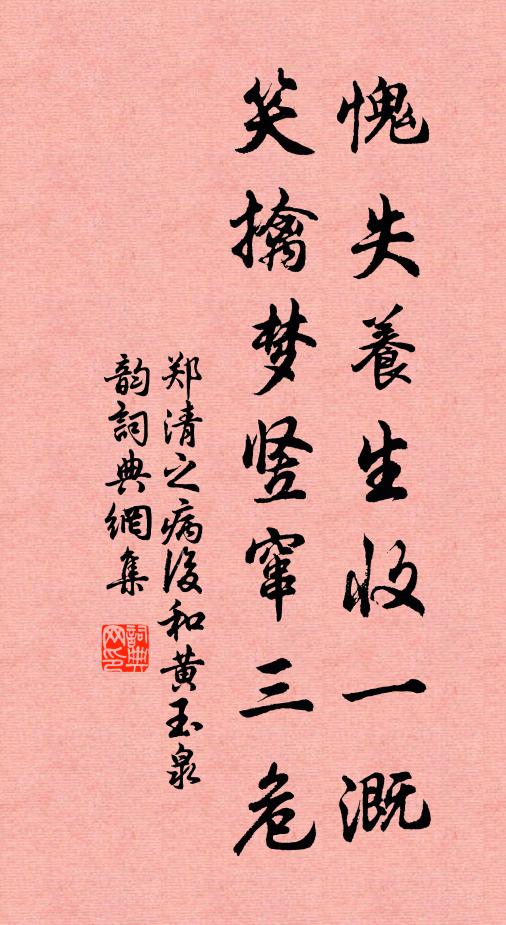 愧失養生收一溉
笑擒梦竖窜三危
郑清之病後和黄玉泉
韵詞典網集
詞典网印